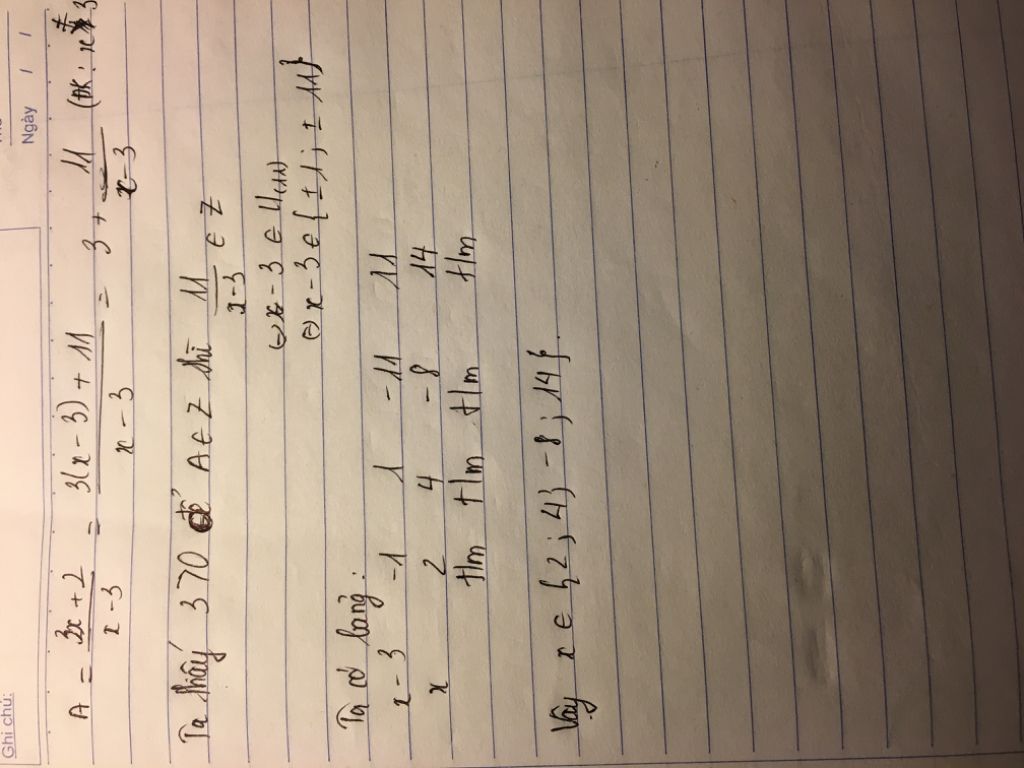 Ghi chú:
Ngày / /
A = 3x+2/x-3 = 3(x-3)+11/x-3 = 3 + 11/x-3 (ĐK: x ≠ 3
Ta thấy 3 > 0 để A ∈ Z thì 11/x-3 ∈ Z
⇔ x-3 ∈ Ư(11)
⇔ x-3 ∈ {±1; ±11}
Ta có bảng:
x-3 -1 1 -11 11
x 2 4 -8 14
t/m t/m t/m t/m
Vậy x ∈ {2; 4; -8; 14}.